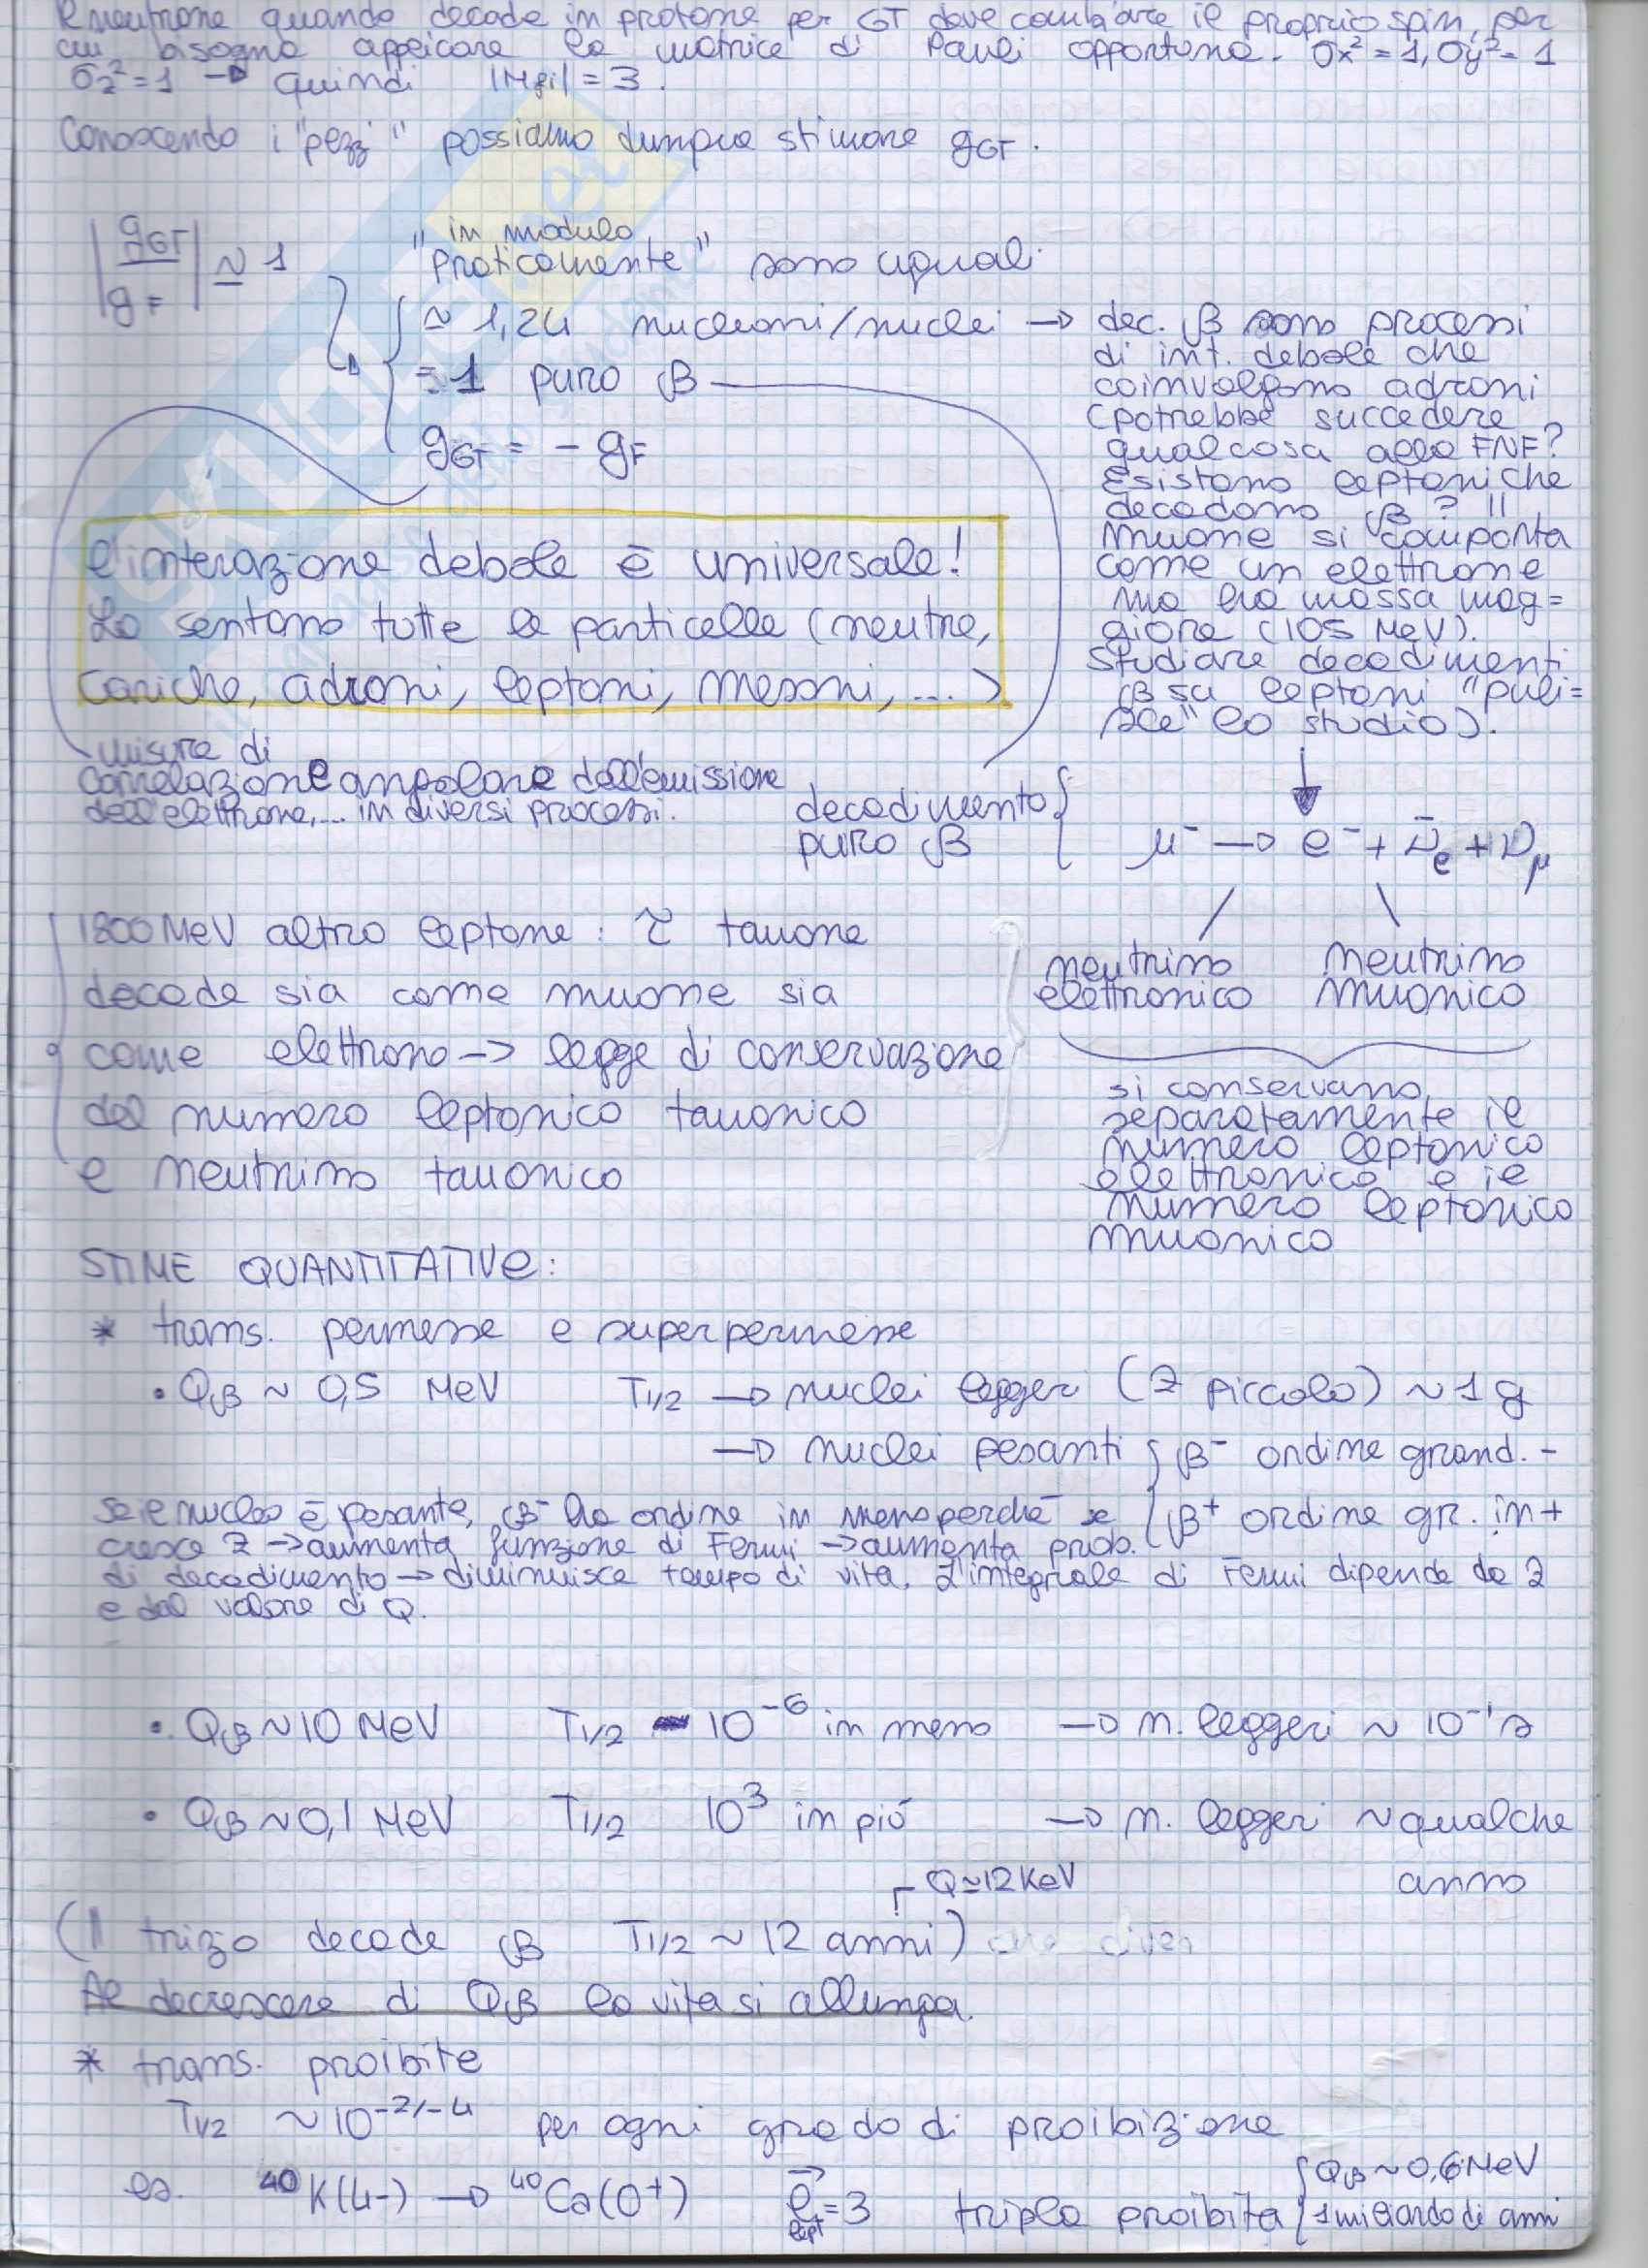 Il neutrone quando decade in protone per GT deve cambiare il proprio spin, per
cui bisogna applicare la matrice di Pauli opportuna. σx²=1, σy²=1
σz²=1 → quindi |Mfi|=3.
Conoscendo i "pezzi" possiamo dunque stimare gGT.
|gGT/gF| ≃ 1
"in modulo
praticamente" sono uguali
≃ 1,24 nucleoni/nuclei → dec. β sono processi
di int. debole che
coinvolgono adroni
(potrebbe succedere
qualcosa alla FNF?
Esistono leptoni che
decadono β? Il
muone si comporta
come un elettrone
ma ha massa mag=
giore (105 MeV).
Studiare decadimenti
β su leptoni "puli=
sce" lo studio).
= 1 puro β
gGT = - gF
L'interazione debole è universale!
La sentono tutte le particelle (neutre,
cariche, adroni, leptoni, mesoni, ...)
misure di
correlazione angolare dell'emissione
dell'elettrone,... in diversi processi.
decadimento
puro β
μ⁻ → e⁻ + ν̄e + νμ
neutrino
elettronico
neutrino
muonico
si conservano
separatamente il
numero leptonico
elettronico e il
numero leptonico
muonico
1800 MeV altro leptone: τ tauone
decade sia come muone sia
come elettrone → legge di conservazione
del numero leptonico tauonico
e neutrino tauonico
STIME QUANTITATIVE:
* trans. permesse e superpermesse
• Qβ ~ 0,5 MeV T1/2 → nuclei leggeri (Z piccolo) ~ 1 g
→ nuclei pesanti { β⁻ ordine grand. -
β⁺ ordine gr. in +
se il nucleo è pesante, β⁻ ha ordine in meno perché se
cresce Z → aumenta funzione di Fermi → aumenta prob.
di decadimento → diminuisce tempo di vita. L'integrale di Fermi dipende da Z
e dal valore di Q.
• Qβ ~ 10 MeV T1/2 10⁻⁶ in meno → n. leggeri ~ 10⁻¹ s
• Qβ ~ 0,1 MeV T1/2 10³ in più → n. leggeri ~ qualche
anno
Q ≃ 12 KeV
(Il trizio decade β T1/2 ~ 12 anni)
Al decrescere di Qβ la vita si allunga.
* trans. proibite
T1/2 ~ 10^-2/-4 per ogni grado di proibizione
es. ⁴⁰K(4-) → ⁴⁰Ca(0⁺) l⃗lept=3 tripla proibita { Qβ ~ 0,6 MeV
1 miliardo di anni